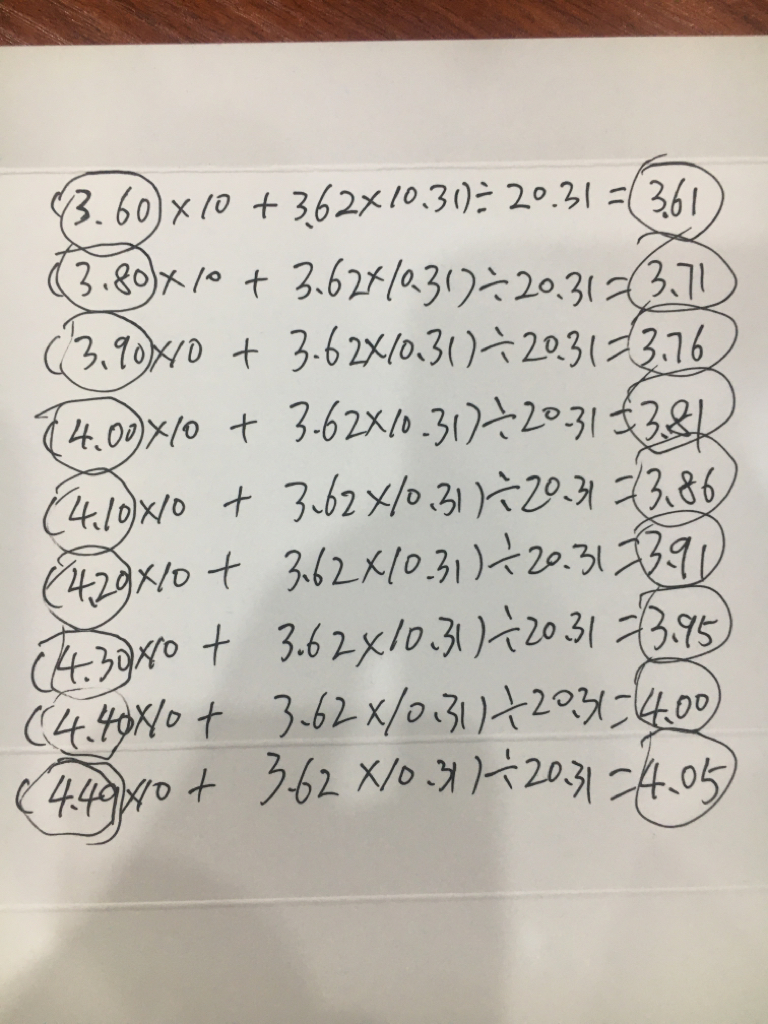 (3.60×10 + 3.62×10.31)÷20.31=3.61
(3.80×10 + 3.62×10.31)÷20.31=3.71
(3.90×10 + 3.62×10.31)÷20.31=3.76
(4.00×10 + 3.62×10.31)÷20.31=3.81
(4.10×10 + 3.62×10.31)÷20.31=3.86
(4.20×10 + 3.62×10.31)÷20.31=3.91
(4.30×10 + 3.62×10.31)÷20.31=3.95
(4.40×10 + 3.62×10.31)÷20.31=4.00
(4.49×10 + 3.62×10.31)÷20.31=4.05